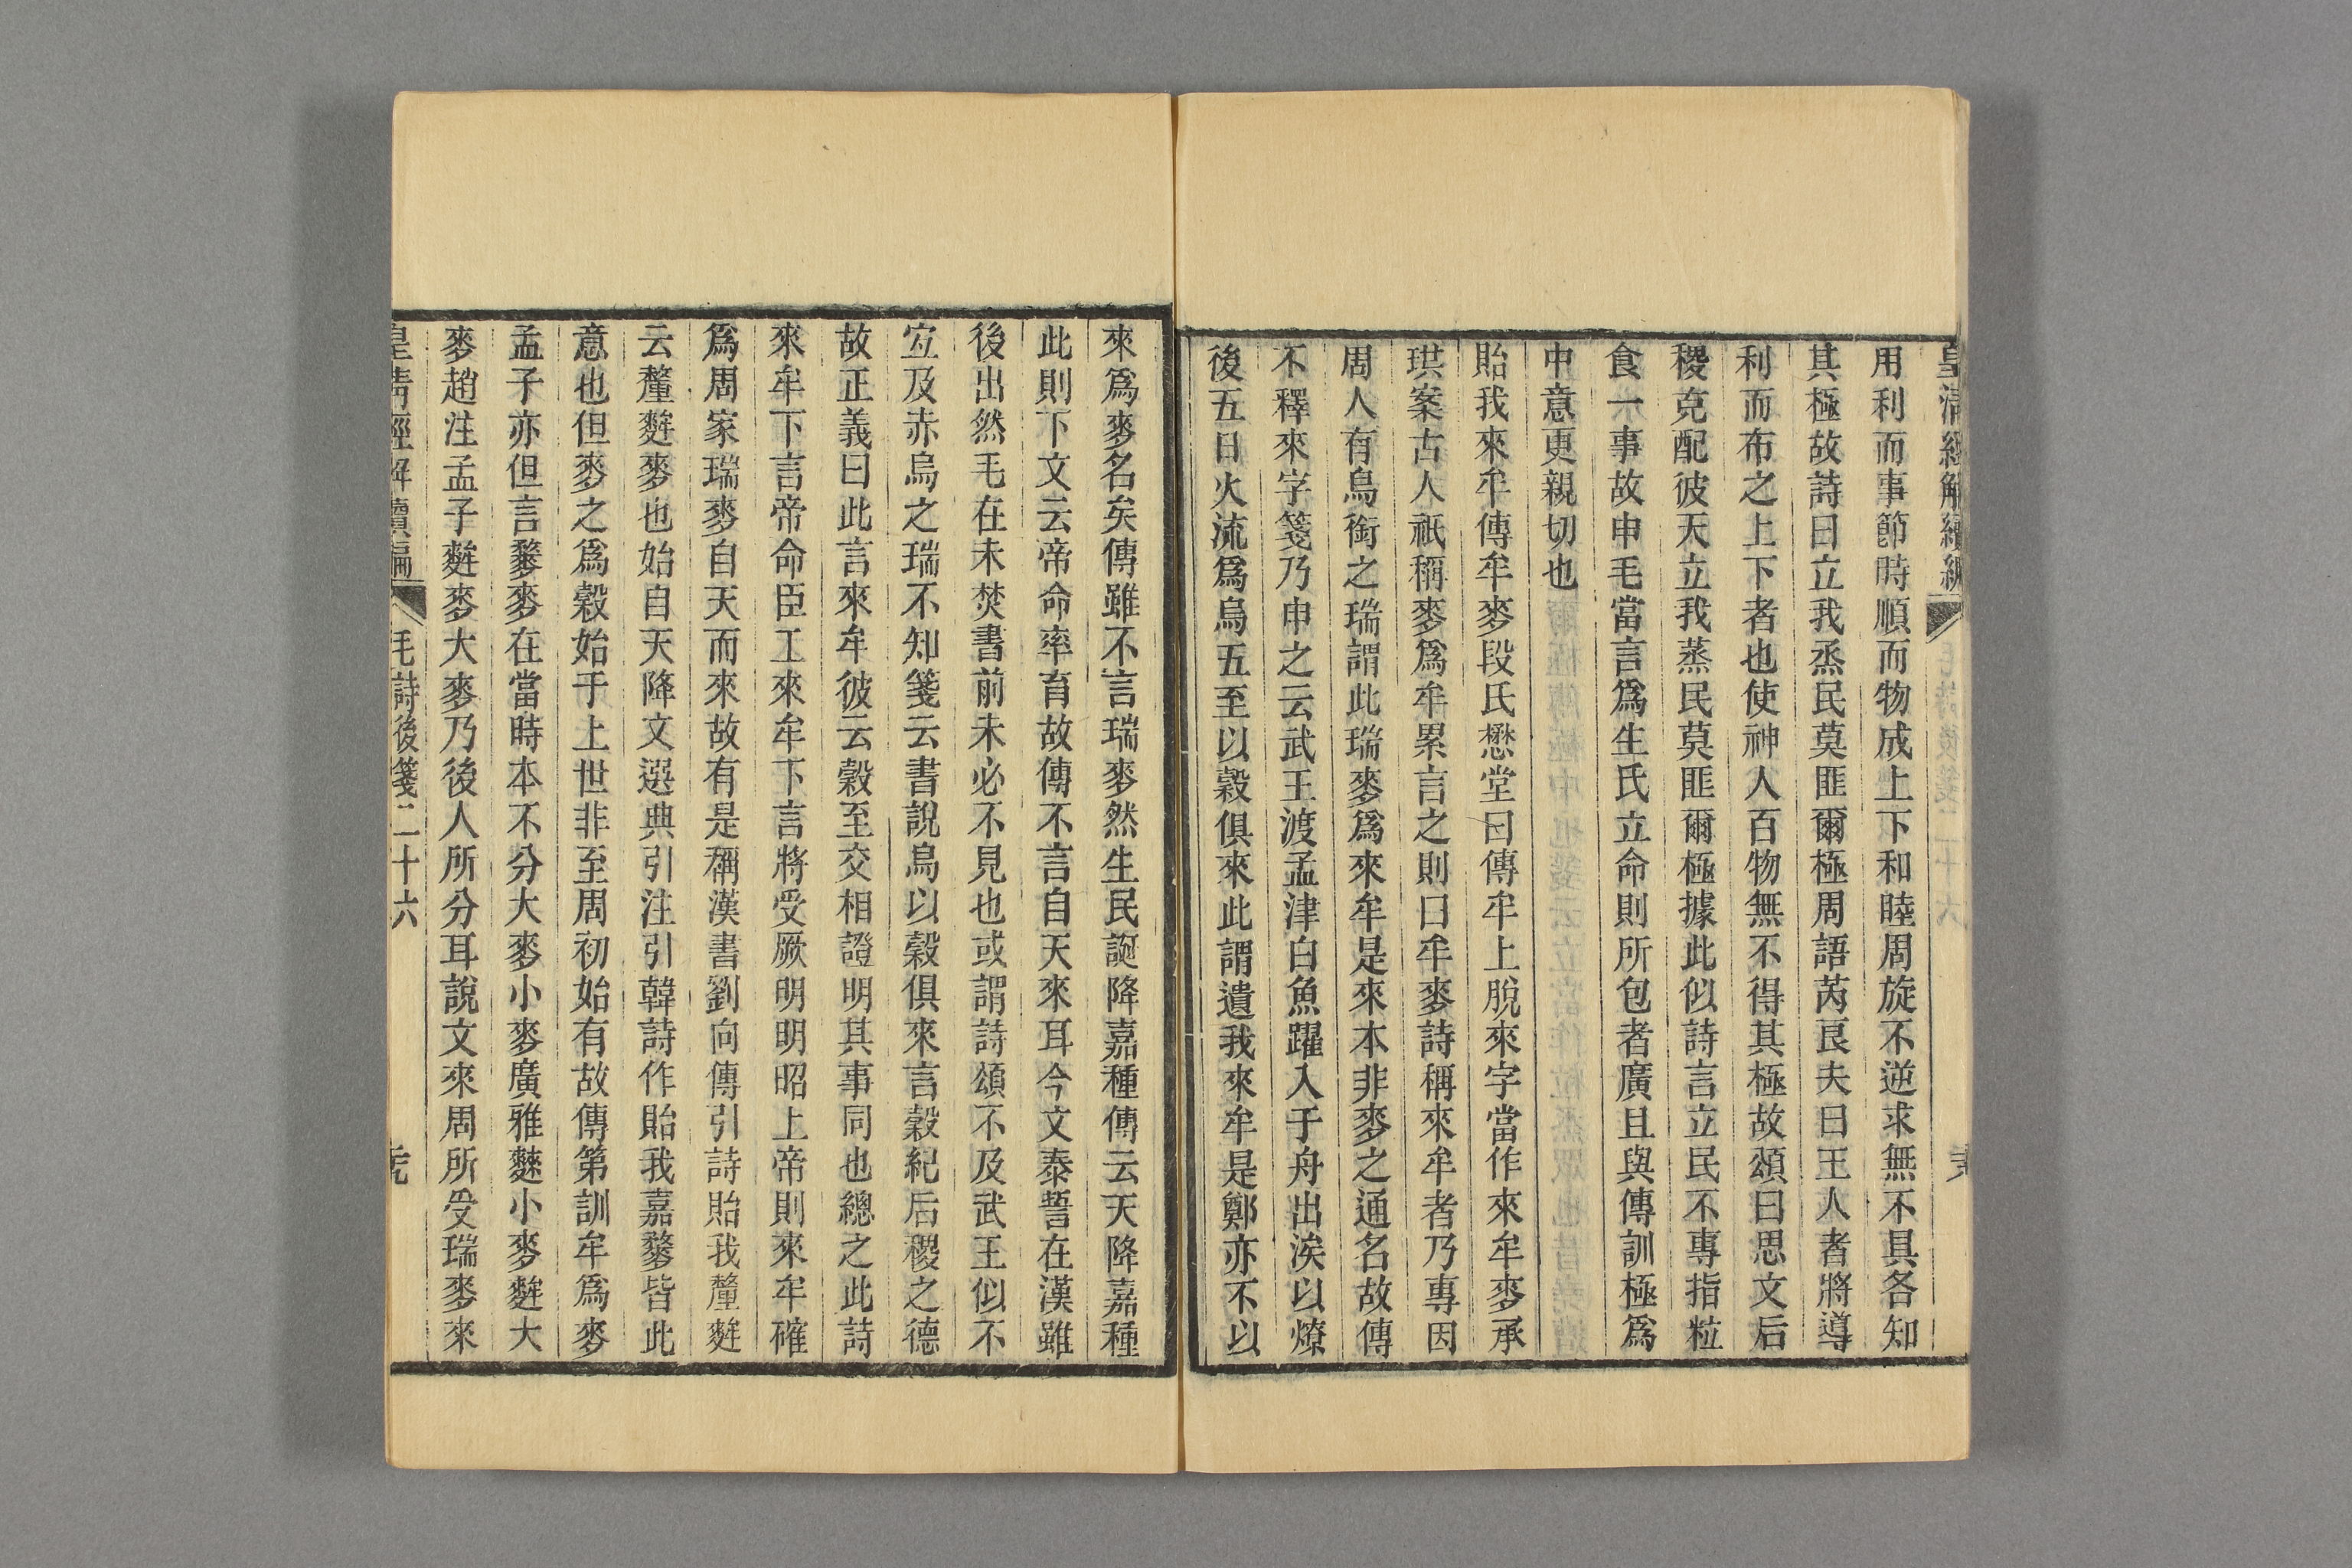 皇清經解續編
用利而事節時順而物成上下和睦周旋不逆求無不具各知
其極故詩曰立我烝民莫匪爾極周語芮良夫曰王人者將導
利而布之上下者也使神人百物無不得其極故頌曰思文后
稷克配彼天立我蒸民莫匪爾極據此似詩言立民不專指粒
食一事故申毛當言爲生民立命則所包者廣且與傳訓極爲
中意更親切也
貽我來牟傳牟麥段氏懋堂曰傳牟上脫來字當作來牟麥承
珙案古人祇稱麥爲牟累言之則曰牟麥詩稱來牟者乃專因
周人有烏銜之瑞謂此瑞麥爲來牟是來本非麥之通名故傳
不釋來字箋乃申之云武王渡孟津白魚躍入于舟出涘以燎
後五日火流爲烏五至以穀俱來此謂遺我來牟是鄭亦不以
來爲麥名矣傳雖不言瑞麥然生民誕降嘉種傳云天降嘉種
此則下文云帝命率育故傳不言自天來耳今文泰誓在漢雖
後出然毛在未焚書前未必不見也或謂詩頌不及武王似不
宐及赤烏之瑞不知箋云書說烏以穀俱來言穀紀后稷之德
故正義曰此言來牟彼云穀至交相證明其事同也總之此詩
來牟下言帝命臣工來牟下言將受厥明明昭上帝則來牟確
爲周家瑞麥自天而來故有是稱漢書劉向傳引詩貽我釐麰
云釐麰麥也始自天降文選典引注引韓詩作貽我嘉䵩皆此
意也但麥之爲穀始于上世非至周初始有故傳第訓牟爲麥
孟子亦但言䵩麥在當時本不分大麥小麥廣雅麳小麥麰大
麥趙注孟子麰麥大麥乃後人所分耳說文來周所受瑞麥來
皇清經解續編 毛詩後箋二十六